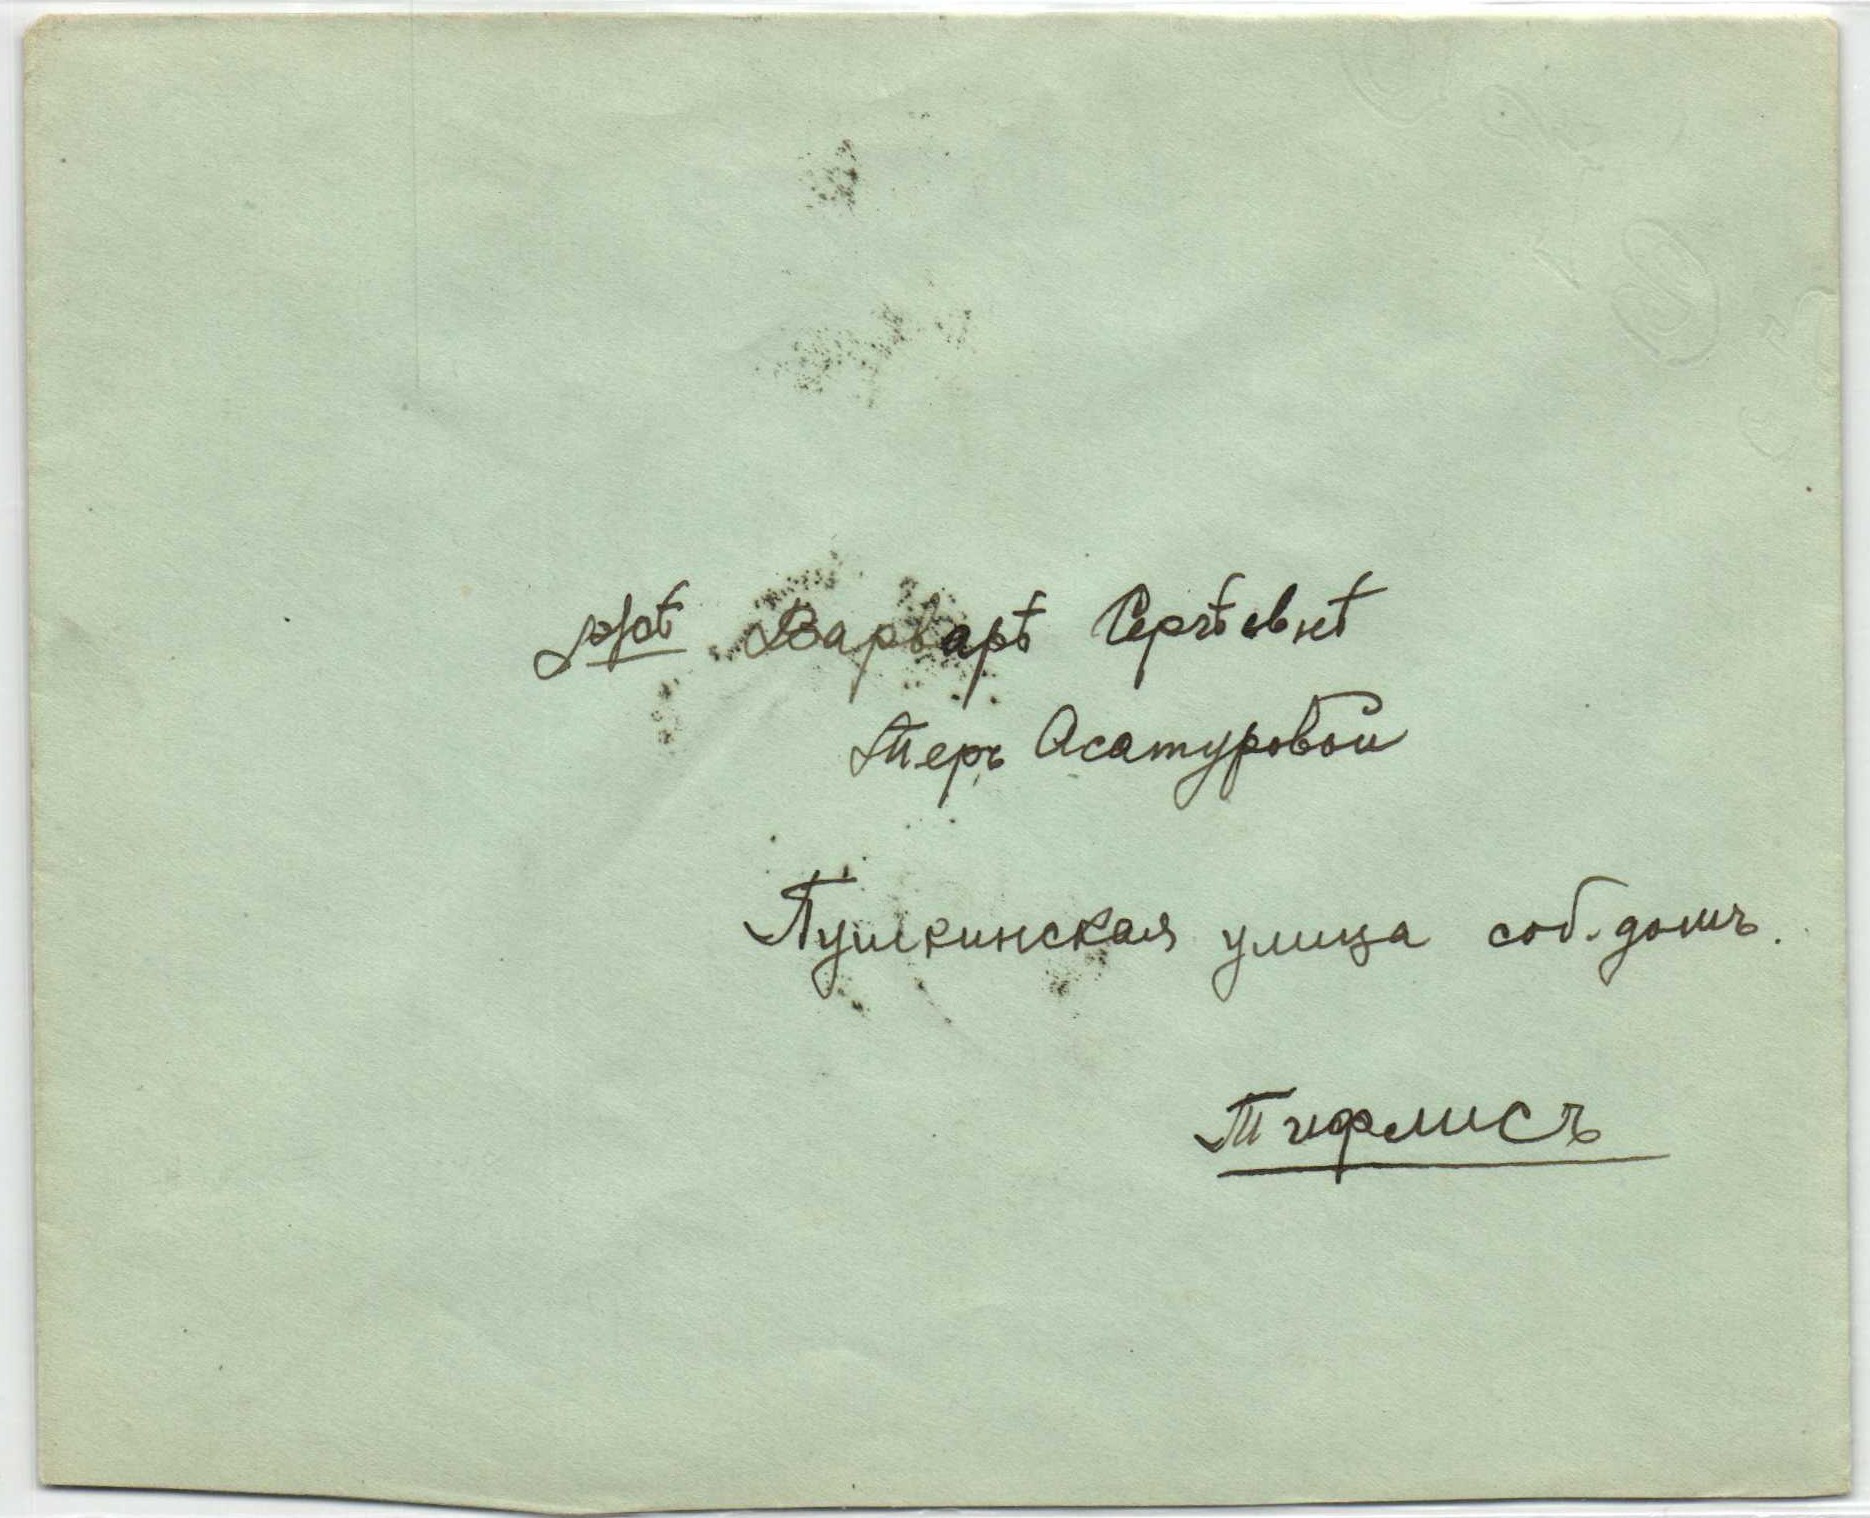 Ея Варварѣ Сергѣевнѣ
Теръ Асатуровой
Пушкинская улица соб. домъ.
Тифлисъ